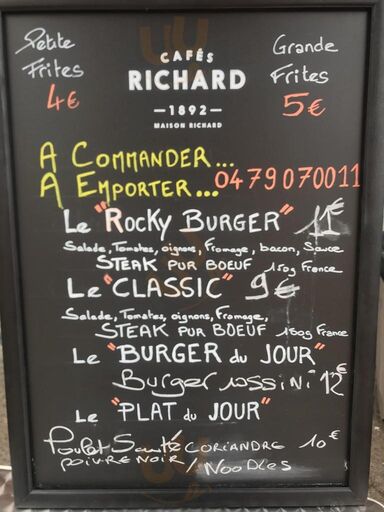 Petite
Frites
4€
CAFÉS
RICHARD
1892
MAISON RICHARD
Grande
Frites
5€
A COMMANDER...
A EMPORTER... 0479070011
Le "ROCKY BURGER" 11€
Salade, Tomates, oignons, Fromage, bacon, Sauce
STEAK PUR BOEUF 150g France
Le "CLASSIC" 9€
Salade, Tomates, oignons, Fromage,
STEAK PUR BOEUF 150g France
Le "BURGER du JOUR"
Burger rossini 12€
Le "PLAT du JOUR"
Poulet Sauté CORIANDRE 10€
POIVRE NOIR / NOODLES